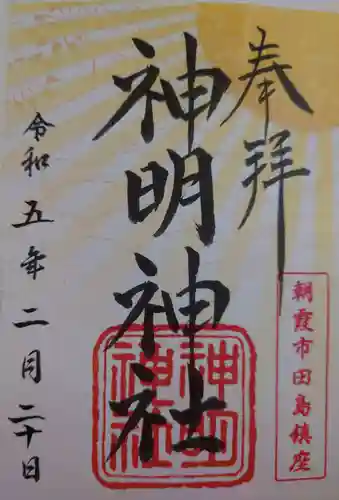 奉拝
朝霞市田島鎮座
神明神社
神明
神社
令和五年二月二十日